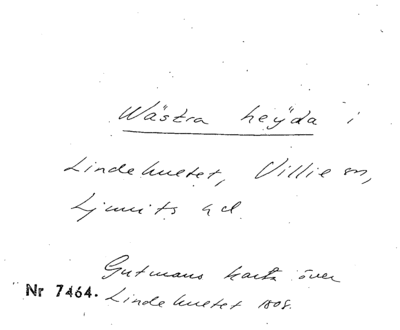 Wästra heÿda i
Lindehultet, Villie sn,
Ljunits hd.
Gutmans karta över
Nr 7464. Lindehultet 1808.